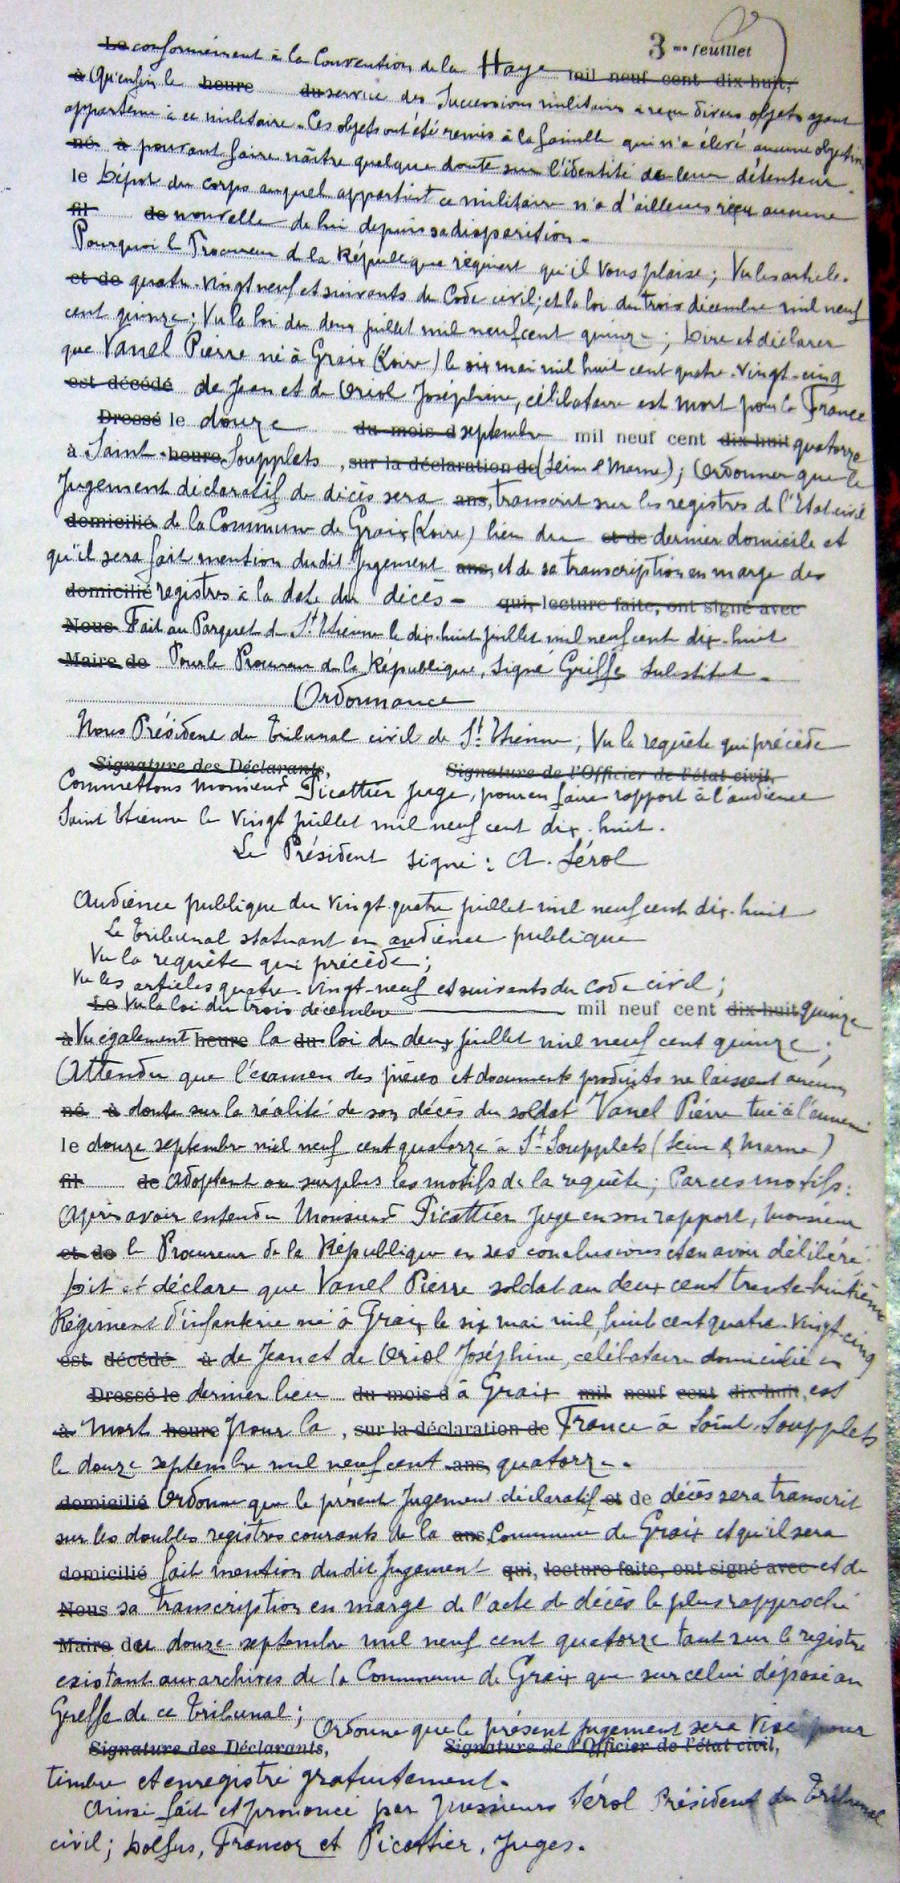 3me feuillet
Le conformément à la Convention de la Haye mil neuf cent dix-huit,
à Qu'enfin le heure du service des Successions militaires a reçu divers objets ayant
appartenu à ce militaire. Ces objets ont été remis à la famille qui n'a élevé aucune objection
né à pouvant faire naître quelque doute sur l'identité de leur détenteur.
le Dépôt du corps auquel appartient ce militaire n'a d'ailleurs reçu aucune
fil de nouvelle de lui depuis sa disparition.
Pourquoi le Procureur de la République requiert qu'il vous plaise; Vu les articles
et de quatre-vingt neuf et suivants du Code civil; et la loi du trois décembre mil neuf
cent quinze; Vu la loi du deux juillet mil neuf cent quinze; Dire et déclarer
que Vanel Pierre né à Graix (Loire) le six mai mil huit cent quatre-vingt-cinq
est décédé de Jean et de Oriol Joséphine, célibataire est mort pour la France
Dressé le douze du mois d septembre mil neuf cent dix-huit quatorze
à Saint-heure Soupplets, sur la déclaration de (Seine & Marne); Ordonner que le
Jugement déclaratif de décès sera ans, transcrit sur les registres de l'Etat civil
domicilié de la Commune de Graix (Loire) lieu du et de dernier domicile et
qu'il sera fait mention dudit Jugement ans, et de sa transcription en marge des
domicilié registres à la date du décès - qui, lecture faite, ont signé avec
Nous Fait au Parquet de St Etienne le dix-huit juillet mil neuf cent dix-huit
Maire de Pour le Procureur de la République, Signé Griffe Substitut.
Ordonnance
Nous Président du Tribunal civil de St Etienne; Vu la requête qui précède
Signature des Déclarants, Signature de l'Officier de l'état civil,
Commettons Monsieur Picattier Juge, pour en faire rapport à l'audience
Saint Etienne le vingt juillet mil neuf cent dix-huit.
Le Président signé: A. Sérol
Audience publique du vingt-quatre juillet mil neuf cent dix-huit
Le Tribunal statuant en audience publique
Vu la requête qui précède;
Vu les articles quatre-vingt-neuf et suivants du Code civil;
Le Vu la loi du trois décembre mil neuf cent dix-huit quinze
à Vu également heure la du loi du deux juillet mil neuf cent quinze;
Attendu que l'examen des pièces et documents produits ne laissent aucun
né à doute sur la réalité de son décès du soldat Vanel Pierre tué à l'ennemi
le douze septembre mil neuf cent quatorze à St Soupplets (Seine & Marne)
fil de Adoptant au surplus les motifs de la requête; Par ces motifs:
Après avoir entendu Monsieur Picattier Juge en son rapport, Monsieur
et de le Procureur de la République en ses conclusions et en avoir délibéré.
Dit et déclare que Vanel Pierre soldat au deux cent trente-huitième
Régiment d'infanterie né à Graix le six mai mil huit cent quatre-vingt-cinq
est décédé à de Jean et de Oriol Joséphine, célibataire domicilié en
Dressé le dernier lieu du mois d à Graix mil neuf cent dix-huit, est
à Mort heure pour la, sur la déclaration de France à Saint-Soupplets
le douze septembre mil neuf cent ans, quatorze.
domicilié Ordonne que le présent Jugement déclaratif et de décès sera transcrit
sur les doubles registres courants de la ans, Commune de Graix et qu'il sera
domicilié fait mention dudit Jugement qui, lecture faite, ont signé avec et de
Nous sa transcription en marge de l'acte de décès le plus rapproché
Maire du douze septembre mil neuf cent quatorze tant sur le registre
existant aux archives de la Commune de Graix que sur celui déposé au
Greffe de ce Tribunal; Ordonne que le présent Jugement sera visé pour
Signature des Déclarants, Signature de l'Officier de l'état civil,
timbre et enregistré gratuitement.
Ainsi fait et prononcé par Messieurs Sérol Président du Tribunal
civil; Dolfus, Francoz et Picattier, Juges.